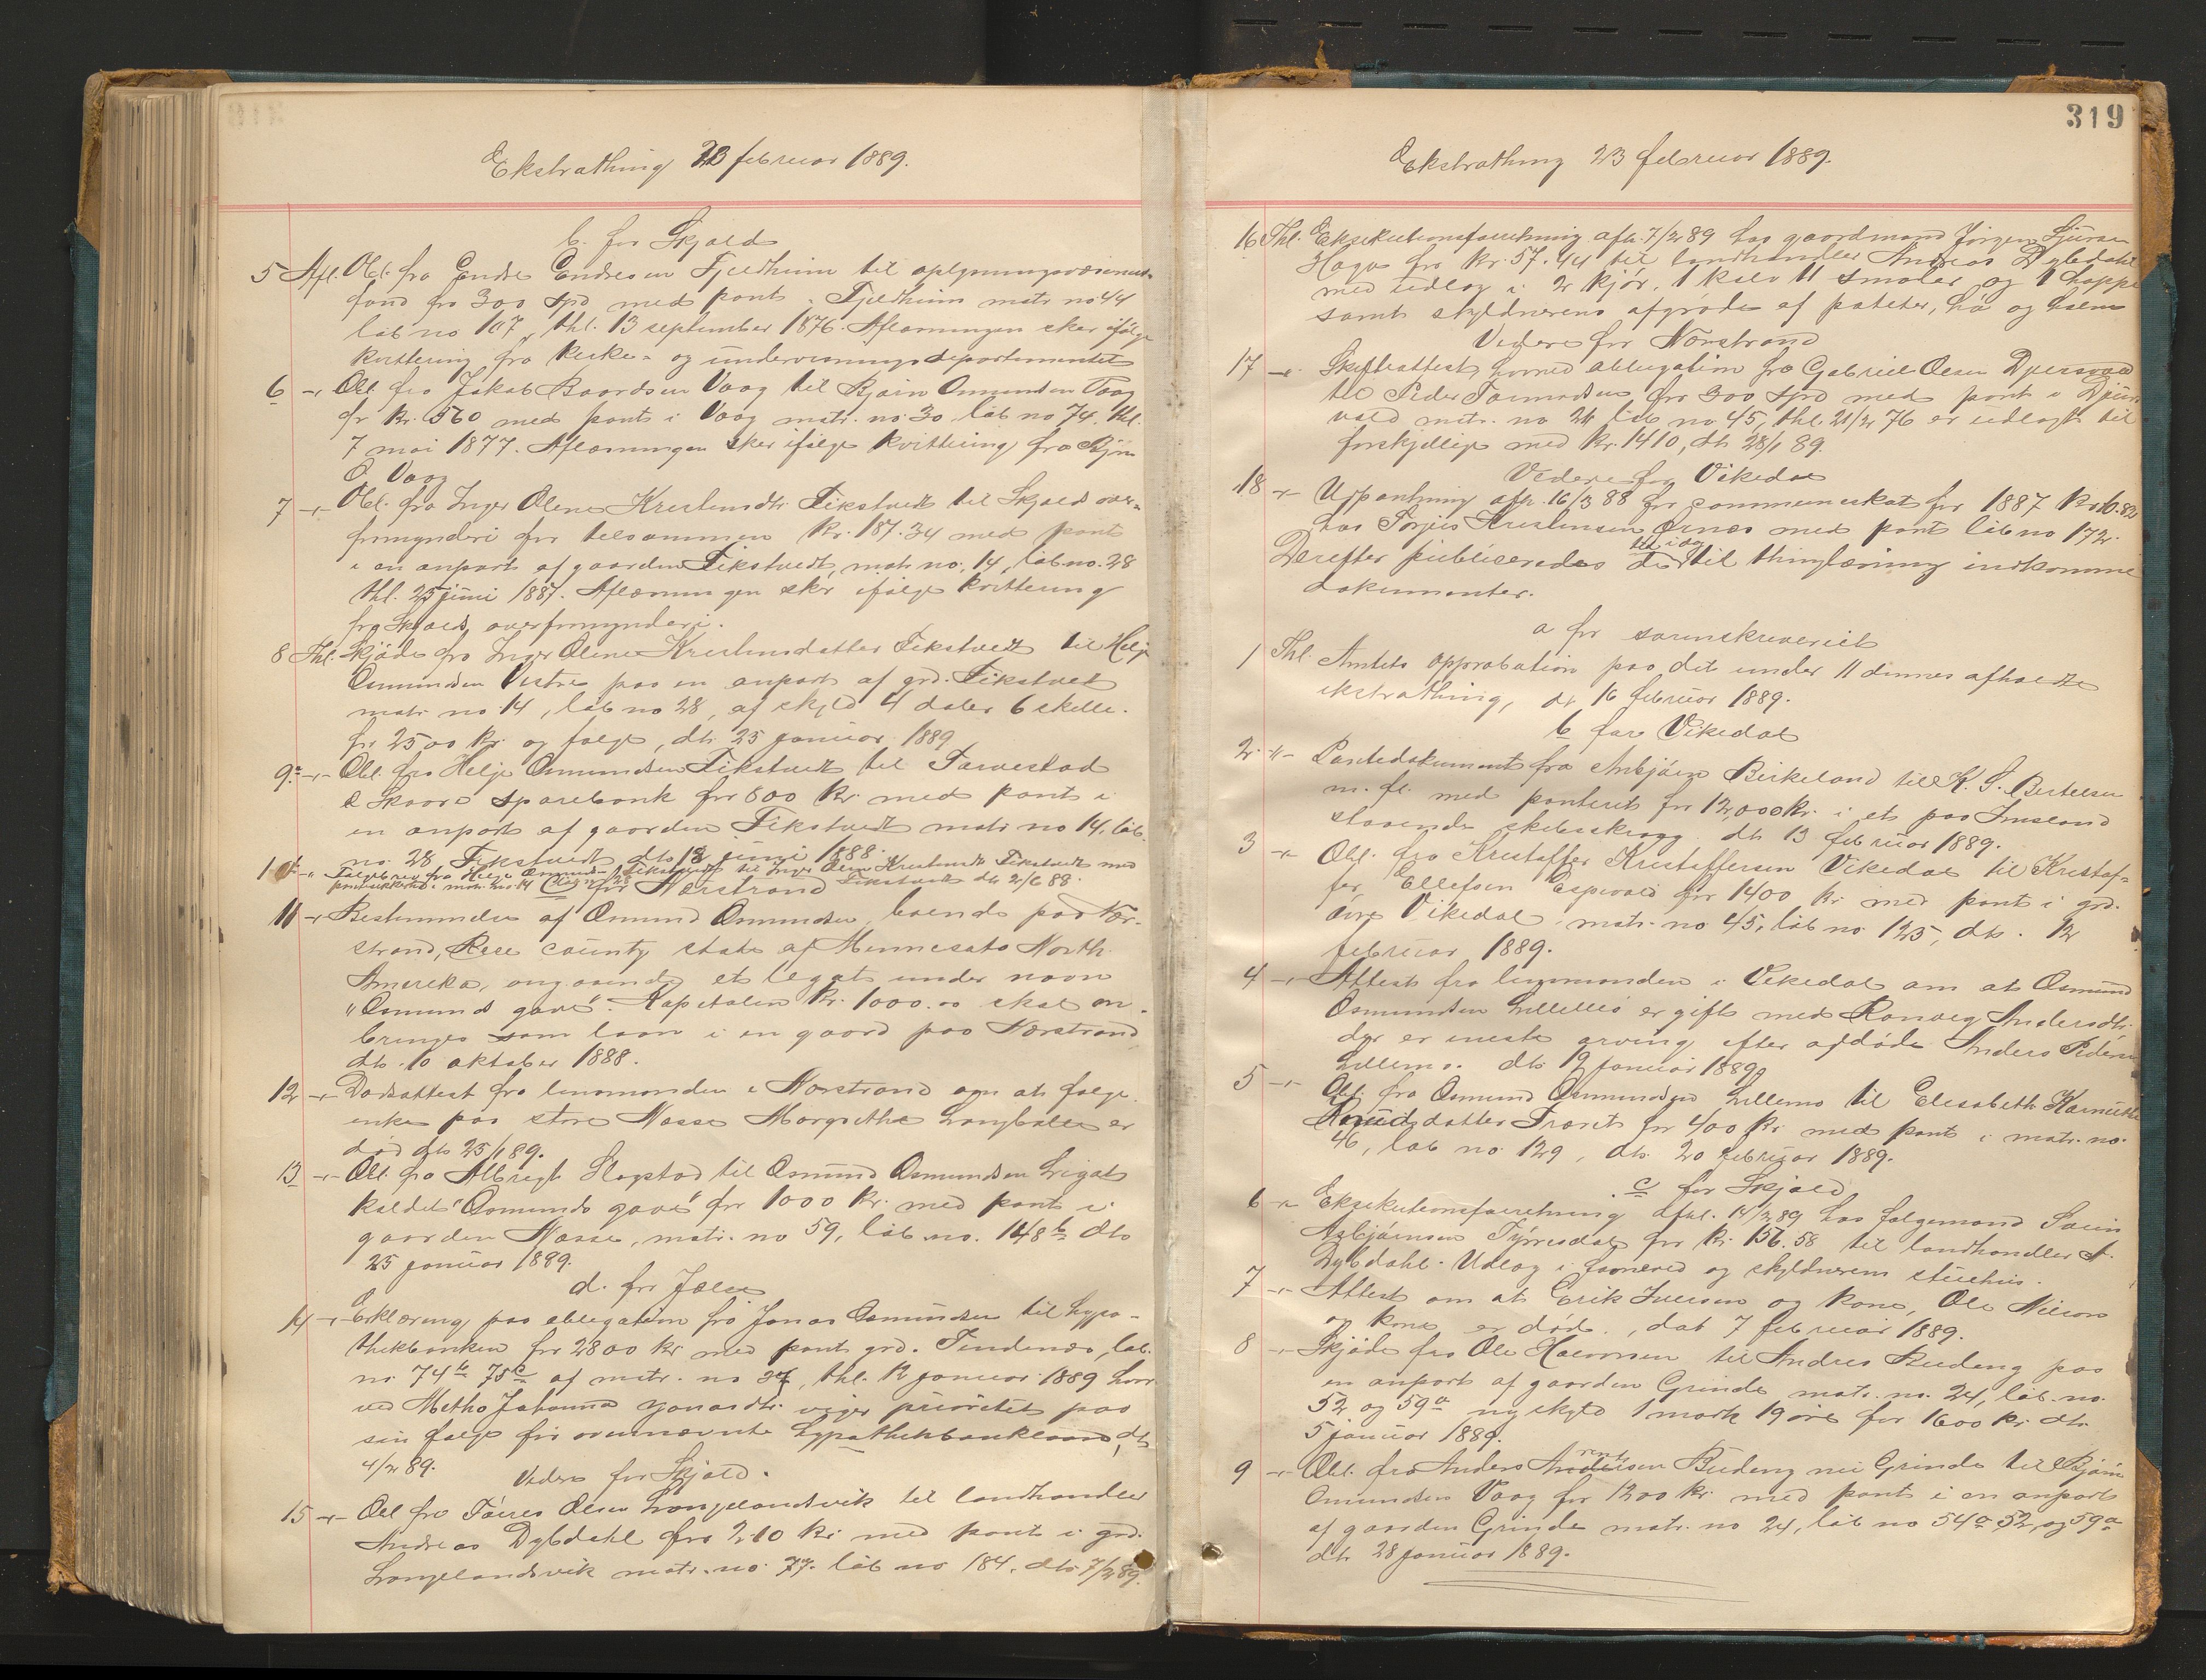 Ekstrathing 23 februar 1889.
b. for Skjold
5 Afl. Obl. fra Endre Endresen Fjeldheim til oplysningsvæsenets
fond for 300 spd med pant i Fjeldheim matr no 44
løb no 107, thl. 13 september 1876. Aflæsningen sker ifølge
kvittering fra kirke- og undervisningsdepartementet
6 -"- Obl. fra Jakob Baardsen Vaag til Bjørn Osmundsen Vaag
for kr. 560 med pant i Vaag matr. no 30 løb no 74. thl.
7 mai 1877. Aflæsningen sker ifølge kvittering fra Bjørn
O. Vaag
7 -"- Obl. fra Inger Olene Kristensdtr. Fikstvedt til Skjold over-
formynderi for tilsammen kr. 187.34 med pant
i en anpart af gaarden Fikstvedt, matr. no. 14, løb no. 28
thl. 25 juni 1887. Aflæsningen sker ifølge kvittering
fra Skjolds overformynderi.
8 Thl. Skjøde fra Inger Olene Kristensdatter Fikstvedt til Helje
Osmundsen Vestre paa en anpart af grd. Fikstvedt
matr no 14, løb no 28, af skyld 4 daler 6 skill.
for 2500 kr. og folge, dt. 25 januar 1889
9 -"- Obl. fra Helje Osmundsen Fikstvedt til Torvestad
& Skaare sparebank for 800 kr. med pant i
en anpart af gaarden Fikstvedt matr no 14, løb
no. 28 Fikstvedt dt. 18 juni 1888.
10 -"- Folgebrev fra Helje Osmundsen Fikstvedt til Inger Olene Kristensdtr Fikstvedt med
pantsikkerhed i matr. no 14 løb no 28 Fikstvedt dt. 21/6 88.
c for Nærstrand
11 -"- Bestemmelse af Osmund Osmundsen, boende paa Nær-
strand, Rice county state of Minnesota North
Amerika, angaaende et legat under navn
"Osmunds gave". Kapitalen kr. 1000.00 skal an-
bringes som laan i en gaard paa Nærstrand
dt. 10 oktober 1888.
12 -"- Dødsattest fra lensmanden i Nærstrand om at folge-
enke paa store Nasse Margrethe er
død dt. 25/1 89.
13 -"- Obl. fra Albregt Slogstad til Osmund Osmundsen Legat
kaldet "Osmunds gave" for 1000 kr. med pant i
gaarden Nasse, matr. no 59, løb no. 148 b dt.
25 januar 1889.
d. for Jelse
14 -"- Erklæring paa obligation fra Jonas Osmundsen til hypo-
thekbanken for 2800 kr med pant grd. Tendenæs, løb.
no. 74 b 75 c af matr. no 37, thl. 12 januar 1889 hvor
ved Metha Johanna Jonasdtr. viger prioritet paa
sin folge for ovennævnte hypothekbanklaan, dt.
4/2 89.
Videre for Skjold.
15 -"- Obl fra Tøres Olsen Langelandsvik til landhandler
Andreas Dybdahl for 210 kr. med pant i grd.
Langelandsvik matr. no. 77 løb no 184, dt. 7/2 89.
319
Ekstrathing 23 februar 1889.
16 Thl. Eksekutionsforretning afh. 7/2 89 hos gaardmand Jørgen Sjursen
Haga for kr. 57.44 til landhandler Andreas Dybdahl
med udlæg i 2 kjør, 1 kalv 11 smaler og 1 hoppe
samt skyldnerens afgrøde af poteter, hø og halm
Videre for Nærstrand
17 -"- Skifteattest hvorved obligation fra Gabriel Olsen Djursvold
til Peder Tormodsen for 300 spd med pant i Djurs-
vold matr. no 24 løb no 45, thl. 21/2 76 er udlagt til
forskjellige med kr. 1410, dt. 28/1 89.
Videre for Vikedal
18 -"- Udpantning afh. 16/3 88 for communeskat for 1887 kr. 10.82
hos Torjus Kristensen Ørnes med pant løb no 172.
Derefter publiceredes de til idag til thinglæsning indkomne
dokumenter.
a for sorenskriveriet
1 Thl. Amtets approbation paa det under 11 dennes afholdte
ekstrathing, dt 16 februar 1889.
b for Vikedal
2 -"- Pantedokument fra Anbjørn Birkeland til K. G. Bertelsen
m. fl. med panteret for 12,000 kr. i et paa Imsland
staaende skibsskrog dt. 13 februar 1889.
3 -"- Obl. fra Kristoffer Kristoffersen Vikedal til Kristof-
fer Ellefsen Espevold for 1400 kr. med pant i grd.
øvre Vikedal matr. no 45, løb no 125, dt. 12
februar 1889.
4 -"- Attest fra lensmanden i Vikedal om at Osmund
Osmundsen er gift med Ranveig Andersdtr.
der er eneste arving efter afdøde Anders Pedersen
Lillemo. dt. 19 januar 1889.
5 -"- Obl. fra Osmund Osmundsen Lillemo til Elisabeth
Knudsdatter for 400 kr med pant i matr. no.
46, løb no. 129, dt. 20 februar 1889.
c for Skjold
6 -"- Eksekutionsforretning afhl. 14/2 89 hos folgemand Svein
Asbjørnsen Tysresdal for kr. 156.58 til landhandler A.
Dybdahl. Udlæg i og skyldnerens stuehus.
7 -"- Attest om at Erik Iversen og kone, Ole Nilsen
og kone er død, dat 7 februar 1889.
8 -"- Skjøde fra Ole Halvorsen til Andres Budeng paa
en anpart af gaarden Grinde matr. no. 24, løb. no.
52 og 59 a ny skyld 1 mark 19 øre for 1600 kr. dt.
5 januar 1889.
9 -"- Obl. fra Anders Andersen Budeng nu Grinde til Bjørn
Osmundsen Vaag for 1200 kr. med pant i en anpart
af gaarden Grinde matr. no 24, løb no 54 a 52, og 59 a
dt. 28 januar 1889.